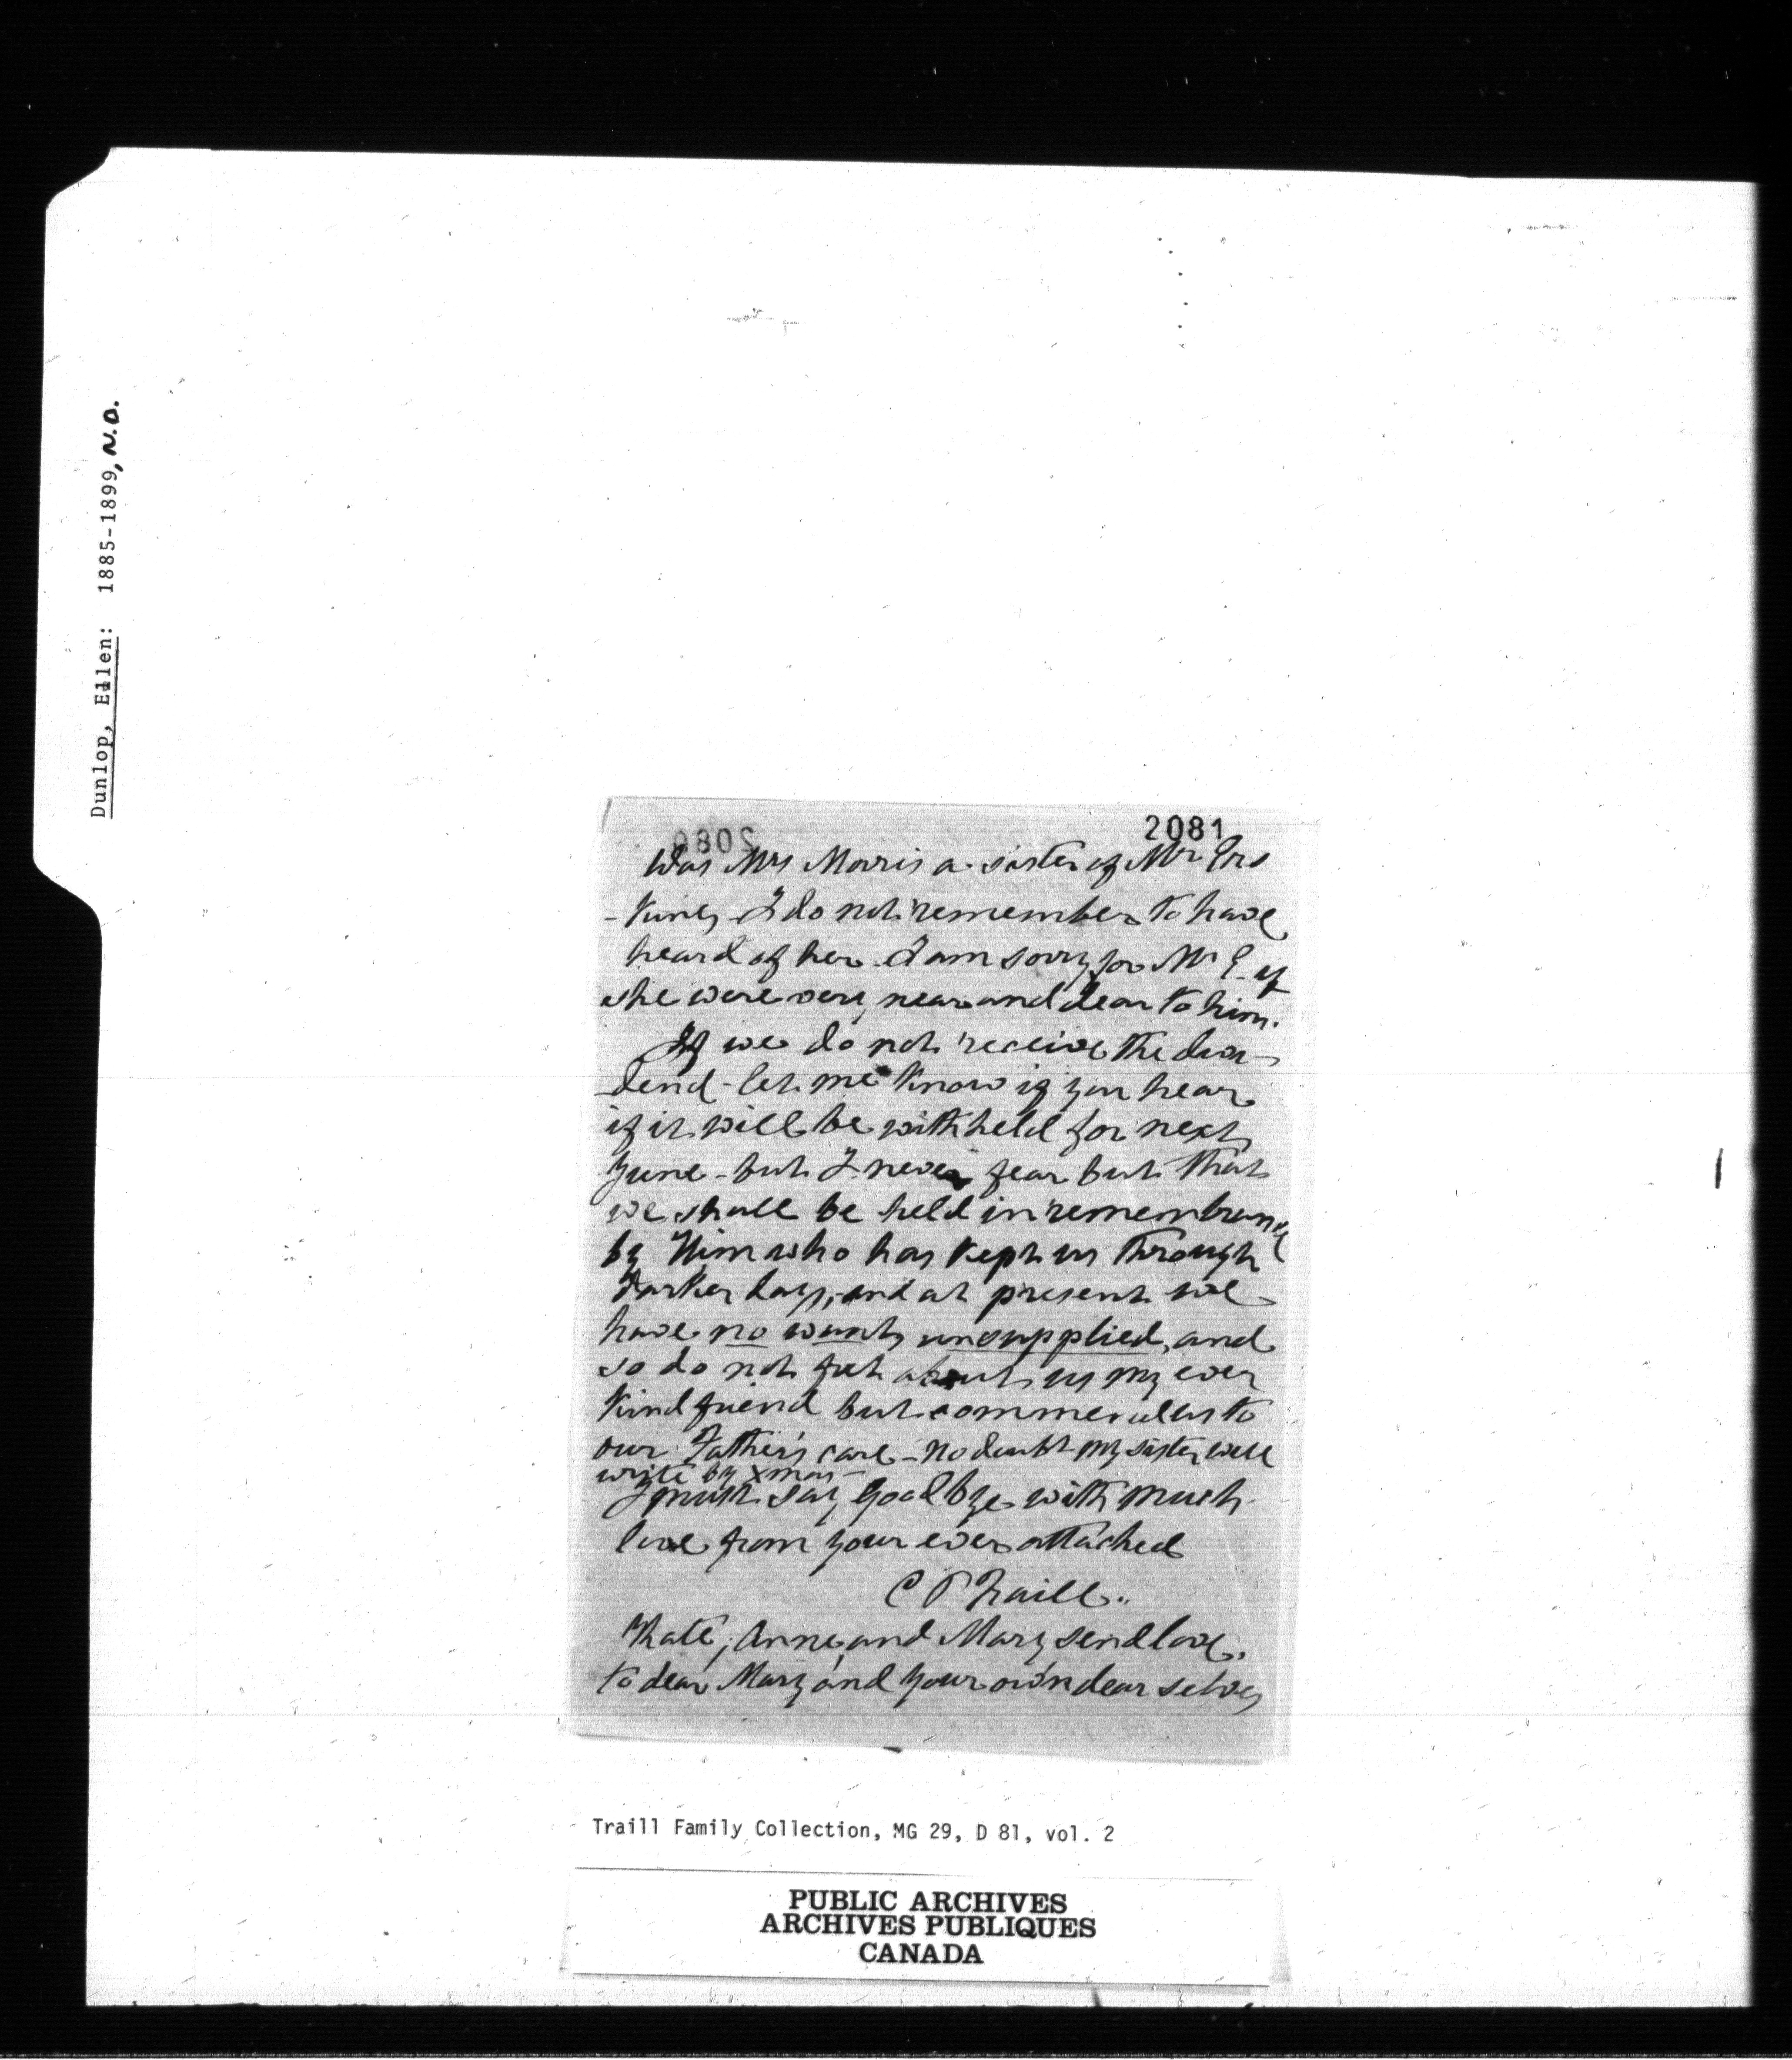 Dunlop, Ellen: 1885-1899, N.D.
2081
2080
Was Mrs Morris a sister of Mr Ers
-kine, I do not remember to have
heard of her. I am sorry for Mr E. if
she were very near and dear to him.
If we do not receive the divi-
dend - let me know if you hear
if it will be withheld for next
June - but I never fear but that
we shall be held in remembrance
by Him who has kept us through
darker days, and at present we
have no wants unsupplied, and
so do not fret about us my ever
kind friend but commend us to
our Father's care - No doubt my sister will
write by Xmas -
I must say goodbye with much
love from your ever attached
C P Traill..
Kate, Anne, and Mary send love,
to dear Mary and your own dear selves
Traill Family Collection, MG 29, D 81, vol. 2
PUBLIC ARCHIVES
ARCHIVES PUBLIQUES
CANADA